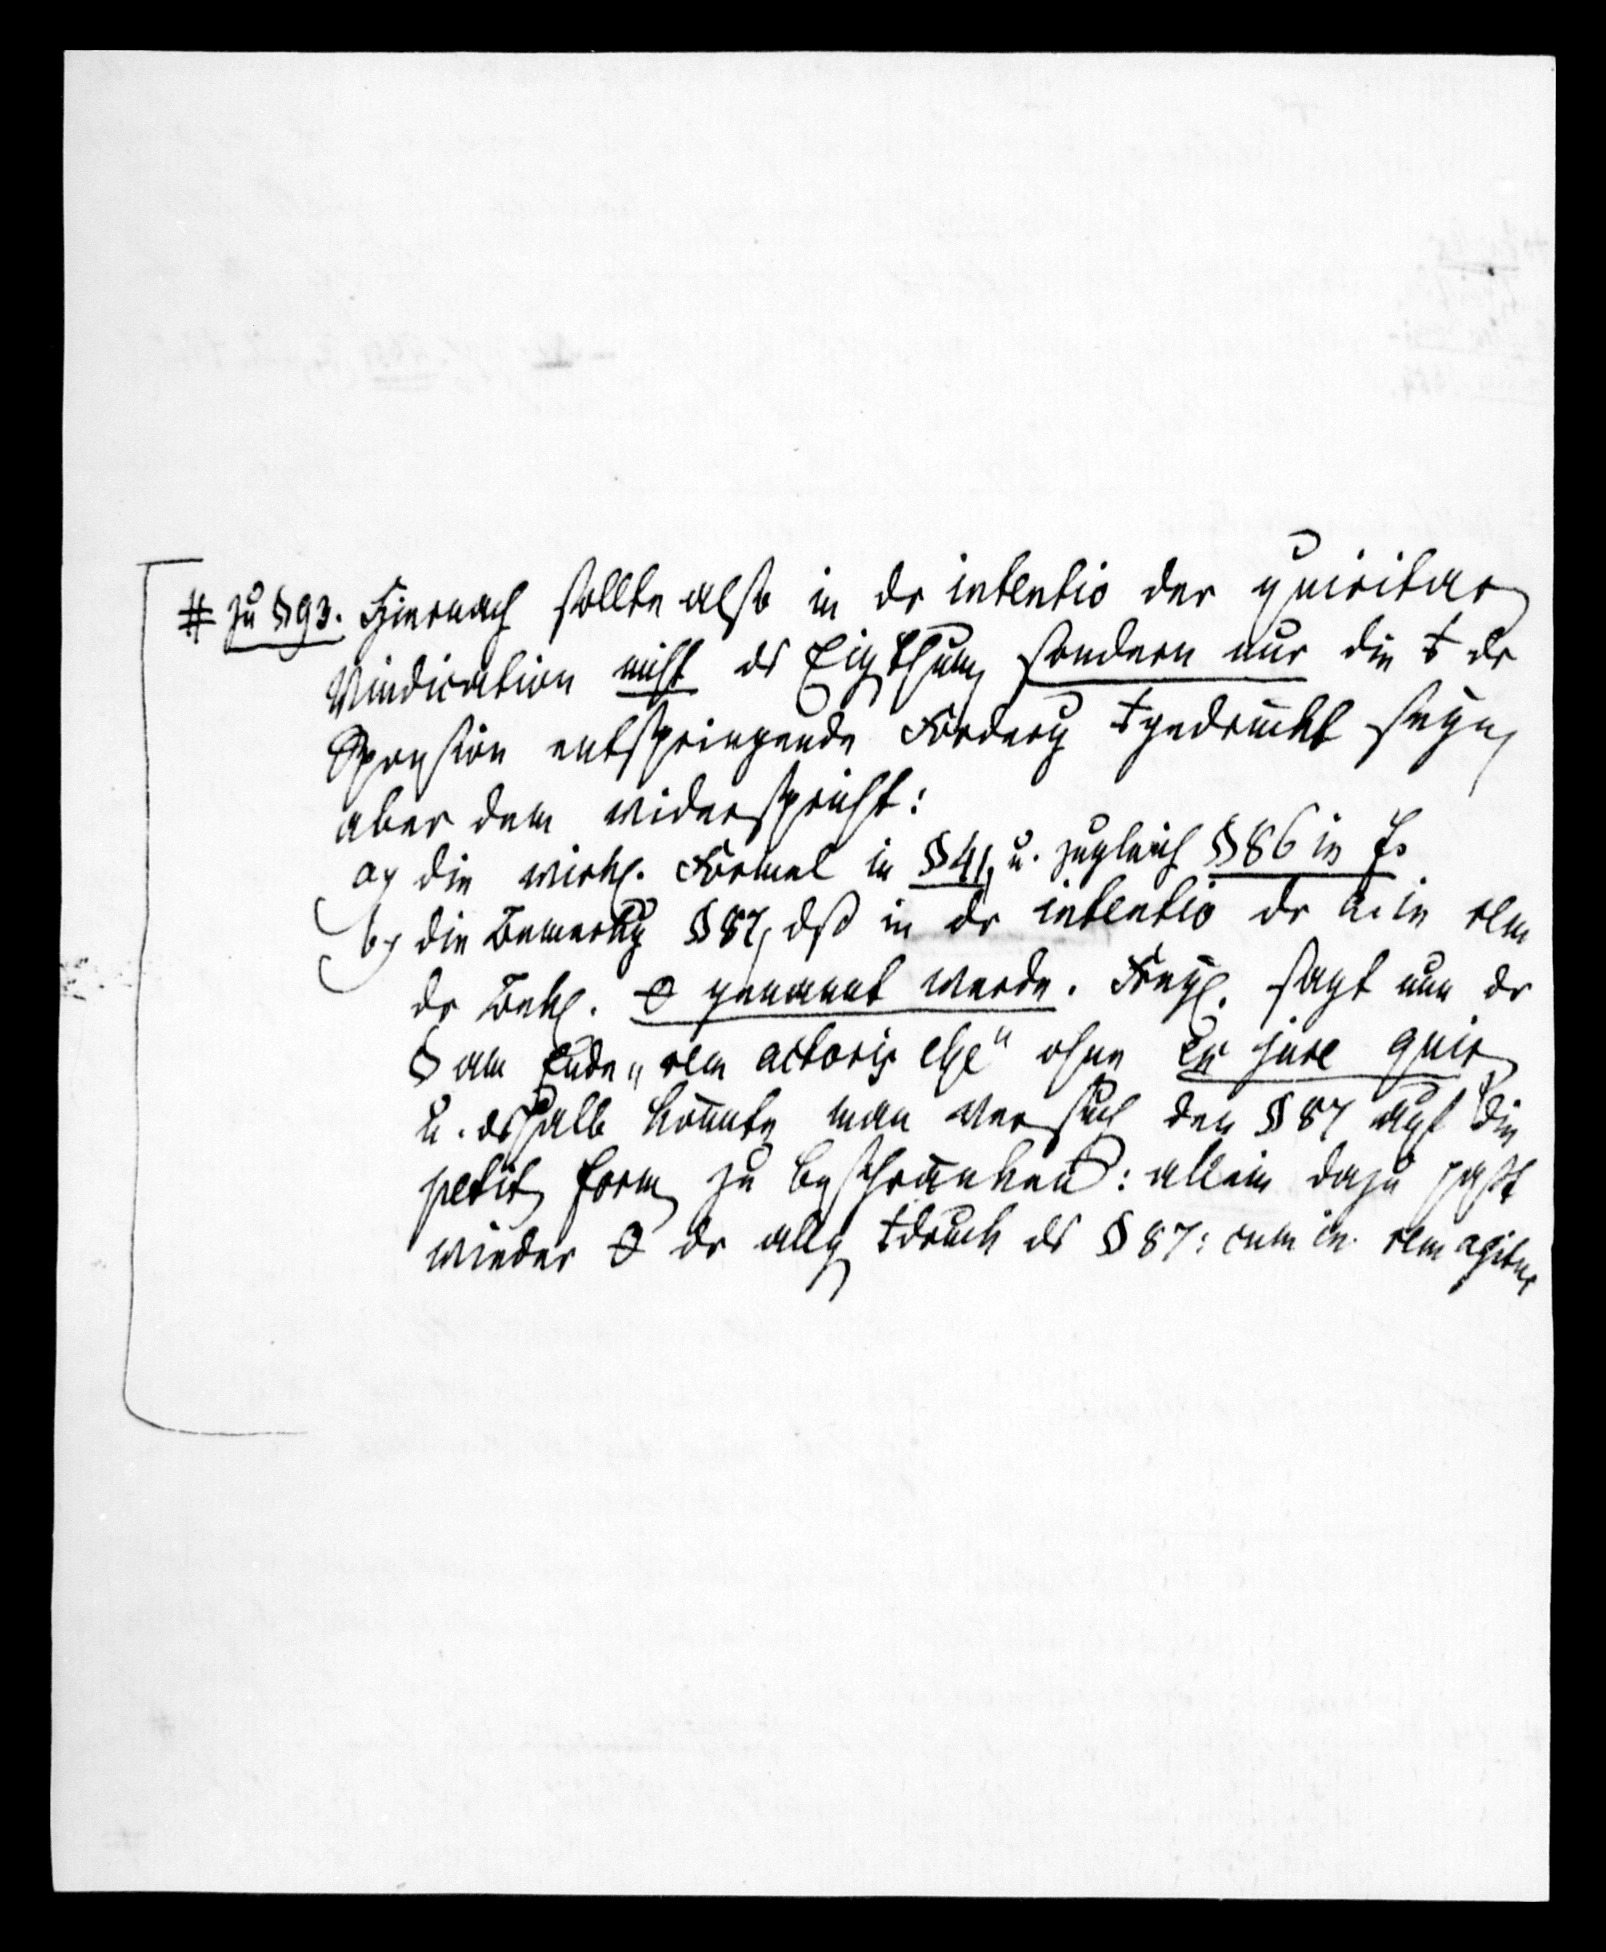 # zu §93. Hiernach sollte also in dr intentio der quiritar
Vindication nicht ds Eigthum sondern nur die ‡ dr
Sponsion entspringende Forderg ‡gedrückt seyn,
aber dem widerspricht:
a, die wirkl. Formel in §41, u. zugleich §86 in f.
b, die Bemerkg §87, dß in dr intentio dr a. in rem
dr Bekl. ɵ genannt werde. Freyl. sagt nun dr
§ am Ende „rem actoris esse“ ohne ex jure quir
u. dshalb könnte man versuch den §87 auf die
petit form zu beschränken: allein dazu paßt
wieder ɵ dr allg ‡druck ds §87: cum in rem agitur